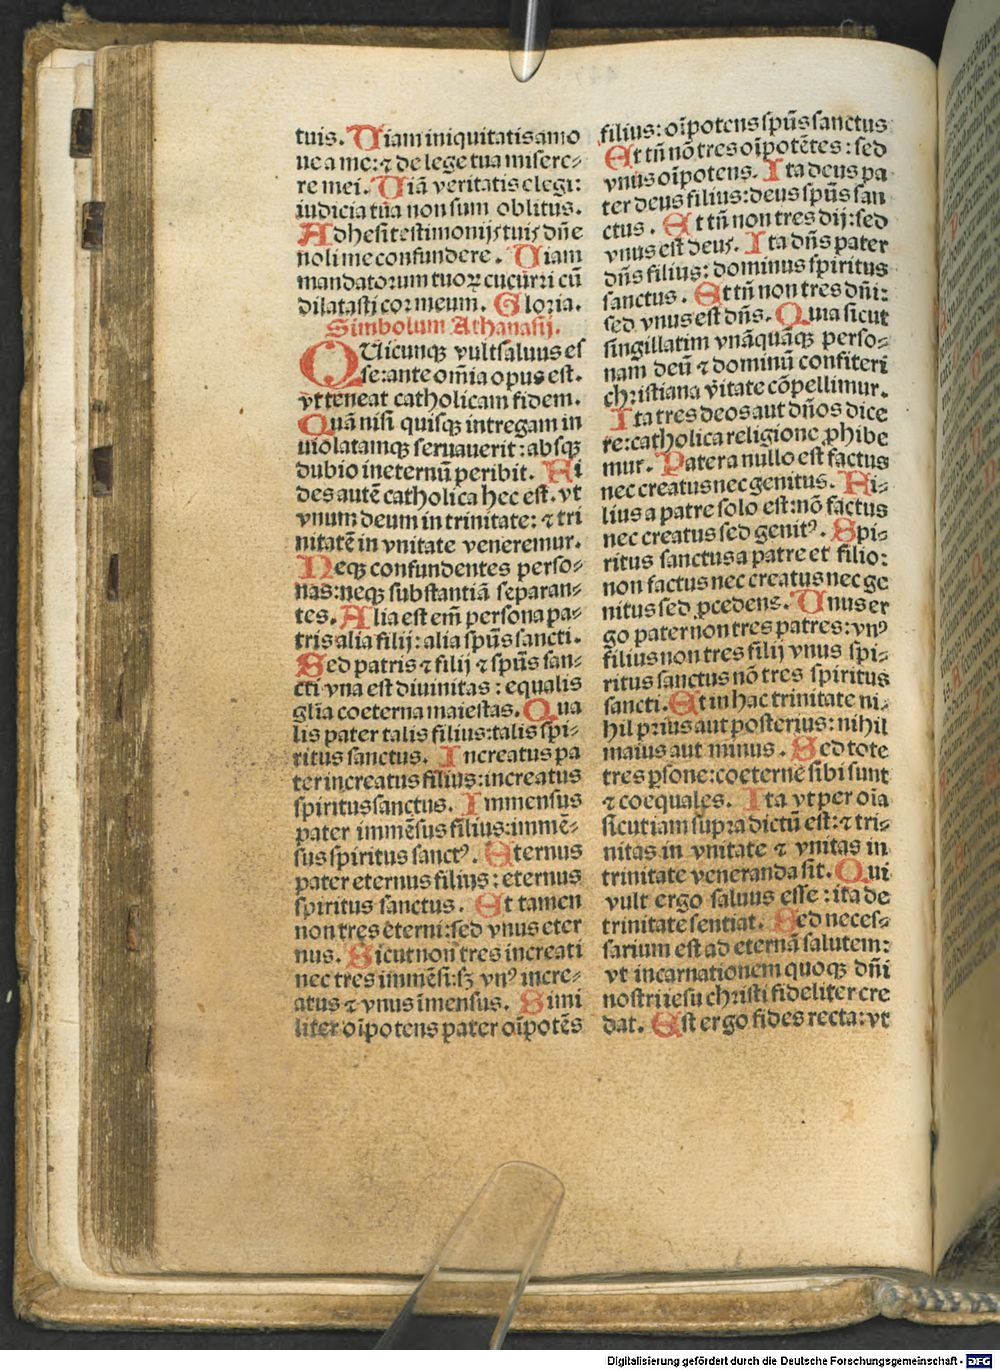 tuis. Uiam iniquitatis amo
ue a me: ⁊ de lege tua misere⸗
re mei. Uiā veritatis elegi:
iudicia tua non sum oblitus.
Adhesi testimonijs tuis dn̄e
noli me confundere. Uiam
mandatorum tuoꝝ cucurri cū
dilatasti cor meum. Gloria.
Simbolum Athanasij.
QUicunqꝫ vult saluus es
se: ante om̄ia opus est.
vt teneat catholicam fidem.
Quā nisi quisqꝫ integram in
uiolatamqꝫ seruauerit: absqꝫ
dubio in eternū peribit. Fi
des autē catholica hec est. vt
vnum deum in trinitate: ⁊ tri
nitatē in vnitate veneremur.
Neqꝫ confundentes perso⸗
nas: neqꝫ substantiā separan⸗
tes. Alia est em̄ persona pa⸗
tris alia filij: alia spūs sancti.
Sed patris ⁊ filij ⁊ spūs san⸗
cti vna est diuinitas: equalis
gl̄ia coeterna maiestas. Qua
lis pater talis filius: talis spi⸗
ritus sanctus. Increatus pa
ter increatus filius: increatus
spiritus sanctus. Immensus
pater immēsus filius: immē⸗
sus spiritus sanctꝰ. Eternus
pater eternus filius: eternus
spiritus sanctus. Et tamen
non tres eterni: sed vnus eter
nus. Sicut non tres increati
nec tres immēsi: sꝫ vnꝰ incre⸗
atus ⁊ vnus īmensus. Simi
liter oīpotens pater oīpotēs
filius: oīpotens spūs sanctus
Et tn̄ nō tres oīpotētes: sed
vnus oīpotens. Ita deus pa
ter deus filius: deus spūs san
ctus. Et tn̄ non tres dij: sed
vnus est deus. Ita dn̄s pater
dn̄s filius: dominus spiritus
sanctus. Et tn̄ non tres dn̄i:
sed vnus est dn̄s. Quia sicut
singillatim vnāquāqꝫ perso⸗
nam deū ⁊ dominū confiteri
christiana v̄itate cōpellimur.
Ita tres deos aut dn̄os dice
re: catholica religione ꝓhibe
mur. Pater a nullo est factus
nec creatus nec genitus. Fi⸗
lius a patre solo est: nō factus
nec creatus sed genitꝰ. Spi⸗
ritus sanctus a patre et filio:
non factus nec creatus nec ge
nitus sed ꝓcedens. Unus er
go pater non tres patres: vnꝰ
filius non tres filij vnus spi⸗
ritus sanctus nō tres spiritus
sancti. Et in hac trinitate ni⸗
hil prius aut posterius: nihil
maius aut minus. Sed tote
tres ꝑsone: coeterne sibi sunt
⁊ coequales. Ita vt per oīa
sicut iam supra dictū est: ⁊ tri⸗
nitas in vnitate ⁊ vnitas in
trinitate veneranda sit. Qui
vult ergo saluus esse: ita de
trinitate sentiat. Sed neces⸗
sarium est ad eternā salutem:
vt incarnationem quoqꝫ dn̄i
nostri iesu christi fideliter cre
dat. Est ergo fides recta: vt
Digitalisierung gefördert durch die Deutsche Forschungsgemeinschaft - DFG